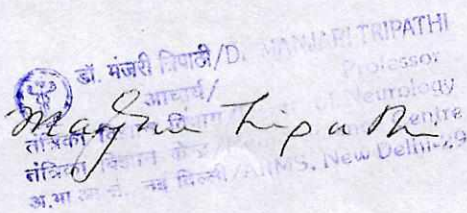 डॉ. मंजरी त्रिपाठी/D. MANJARI TRIPATHI
आचार्य/ Professor
तंत्रिका विज्ञान विभाग/ of Neurology
तंत्रिका विज्ञान केन्द्र/ Centre
अ.भा. नई दिल्ली/AIIMS, New Delhi-29
Manjari Tripathi